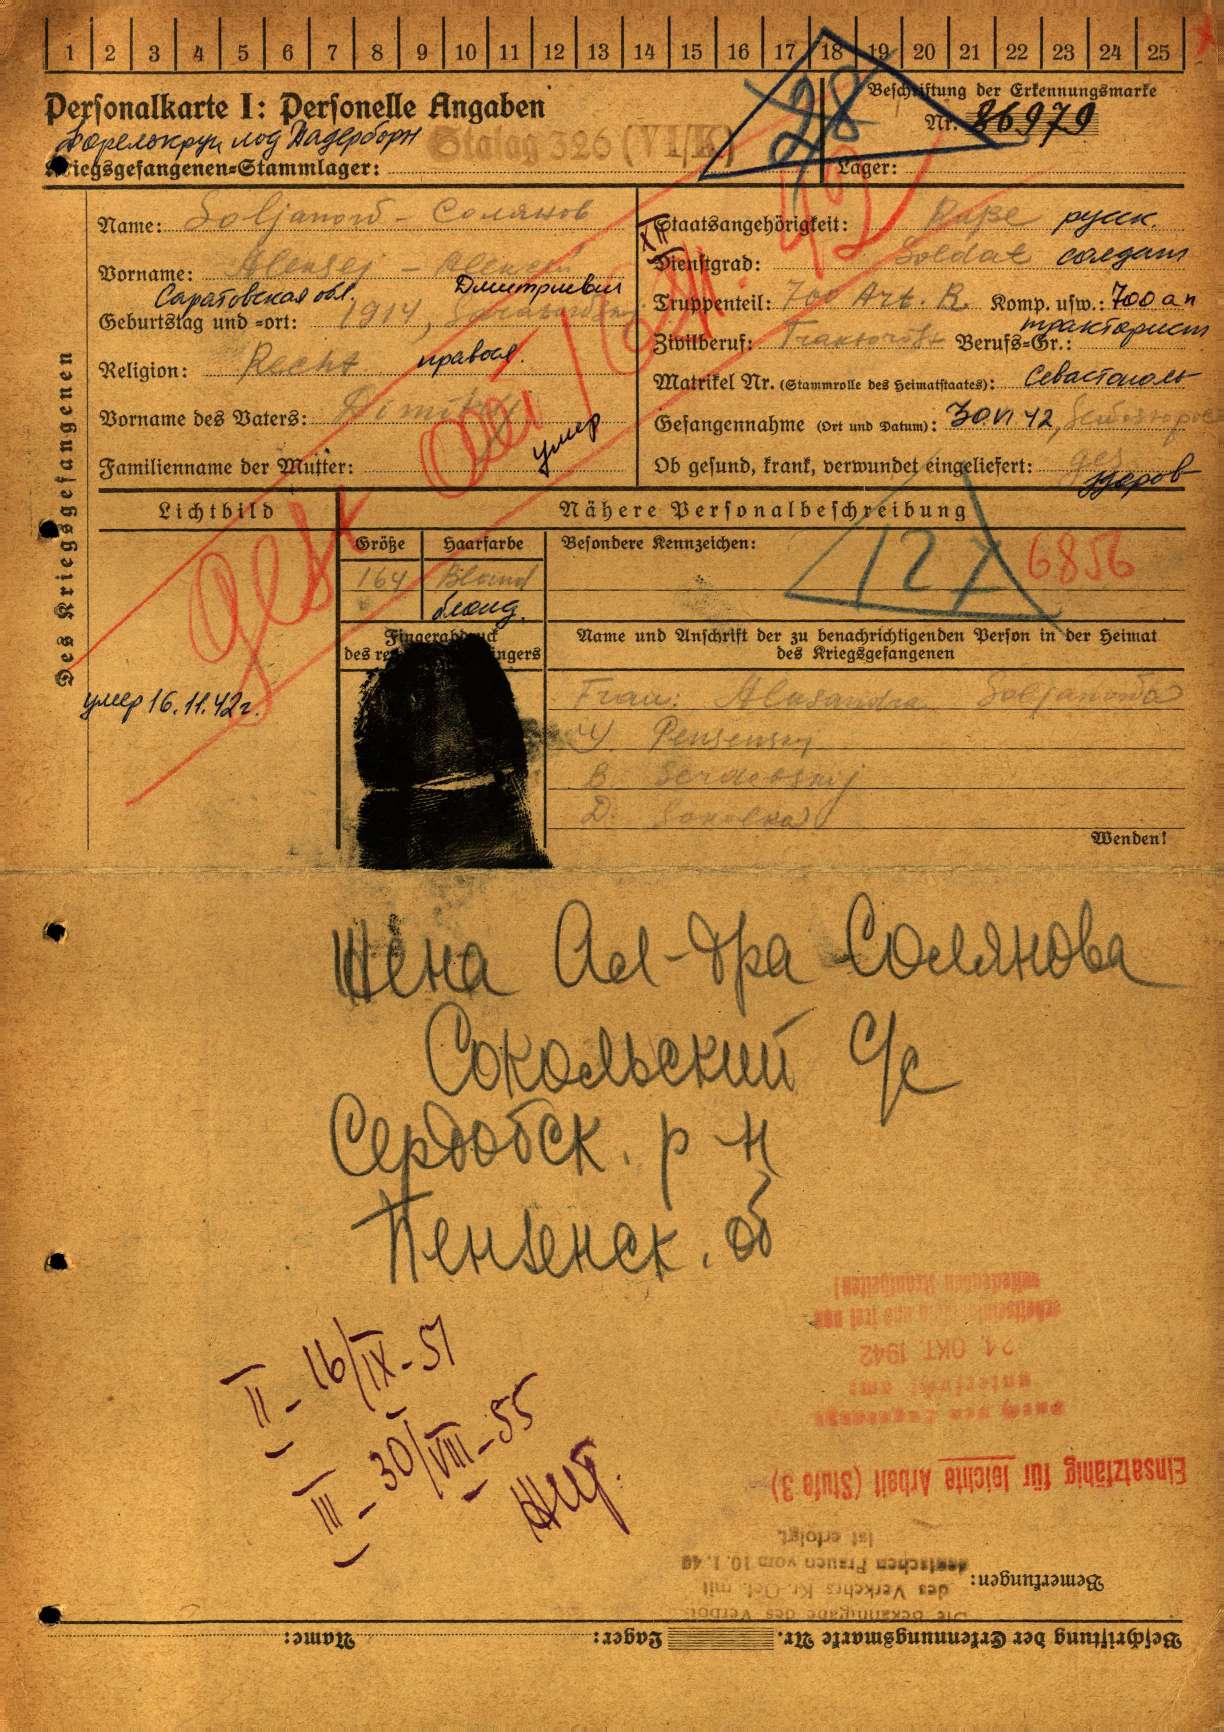 1 2 3 4 5 6 7 8 9 10 11 12 13 14 15 16 17 18 19 20 21 22 23 24 25
Personalkarte I: Personelle Angaben
Beschriftung der Erkennungsmarke
Nr. 86979
под Падерборн
Stalag 326 (VI/K)
Kriegsgefangenen-Stammlager:
Lager:
28
Des Kriegsgefangenen
Name: Soljanow - Солянов
Vorname: Aleksej Алексей
Дмитриевич
Саратовская обл.
Geburtstag und -ort: 1914,
Religion: Recht правосл.
Vorname des Vaters: Dimitry
умер
Familienname der Mutter:
Staatsangehörigkeit: Ruße русск.
Dienstgrad: Soldat солдат
Truppenteil: 700 Art. R. Komp. usw.: 700 ап
тракторист
Zivilberuf: Traktorist Berufs-Gr.:
Matrikel Nr. (Stammrolle des Heimatstaates):
Севастополь
Gefangennahme (Ort und Datum): 30.VI 42,
Ob gesund, krank, verwundet eingeliefert: ges.
здоров
gest. am 16.11.42
Lichtbild
Nähere Personalbeschreibung
Größe Haarfarbe Besondere Kennzeichen:
164 Blond
блонд.
127 6856
Fingerabdruck
des rechten Zeigefingers
Name und Anschrift der zu benachrichtigenden Person in der Heimat
des Kriegsgefangenen
умер 16.11.42г.
Frau: Alexandra Soljanowa
Pensenskj
B. Serdobskij
D.
Wenden!
Жена Ал-дра Солянова
Сокольский с/с
Сердобск. р-н
Пензенск. об
II - 16/IX - 51
III - 30/VIII - 55
24. OKT. 1942
Einsatzfähig für leichte Arbeit (Stufe 3)
Die Bekanntgabe des Verbots
des Verkehrs Kr. Gef. mit
deutschen Frauen vom 10.1.40
ist erfolgt.
Bemerkungen:
Beschriftung der Erkennungsmarke Nr. Lager: Name: